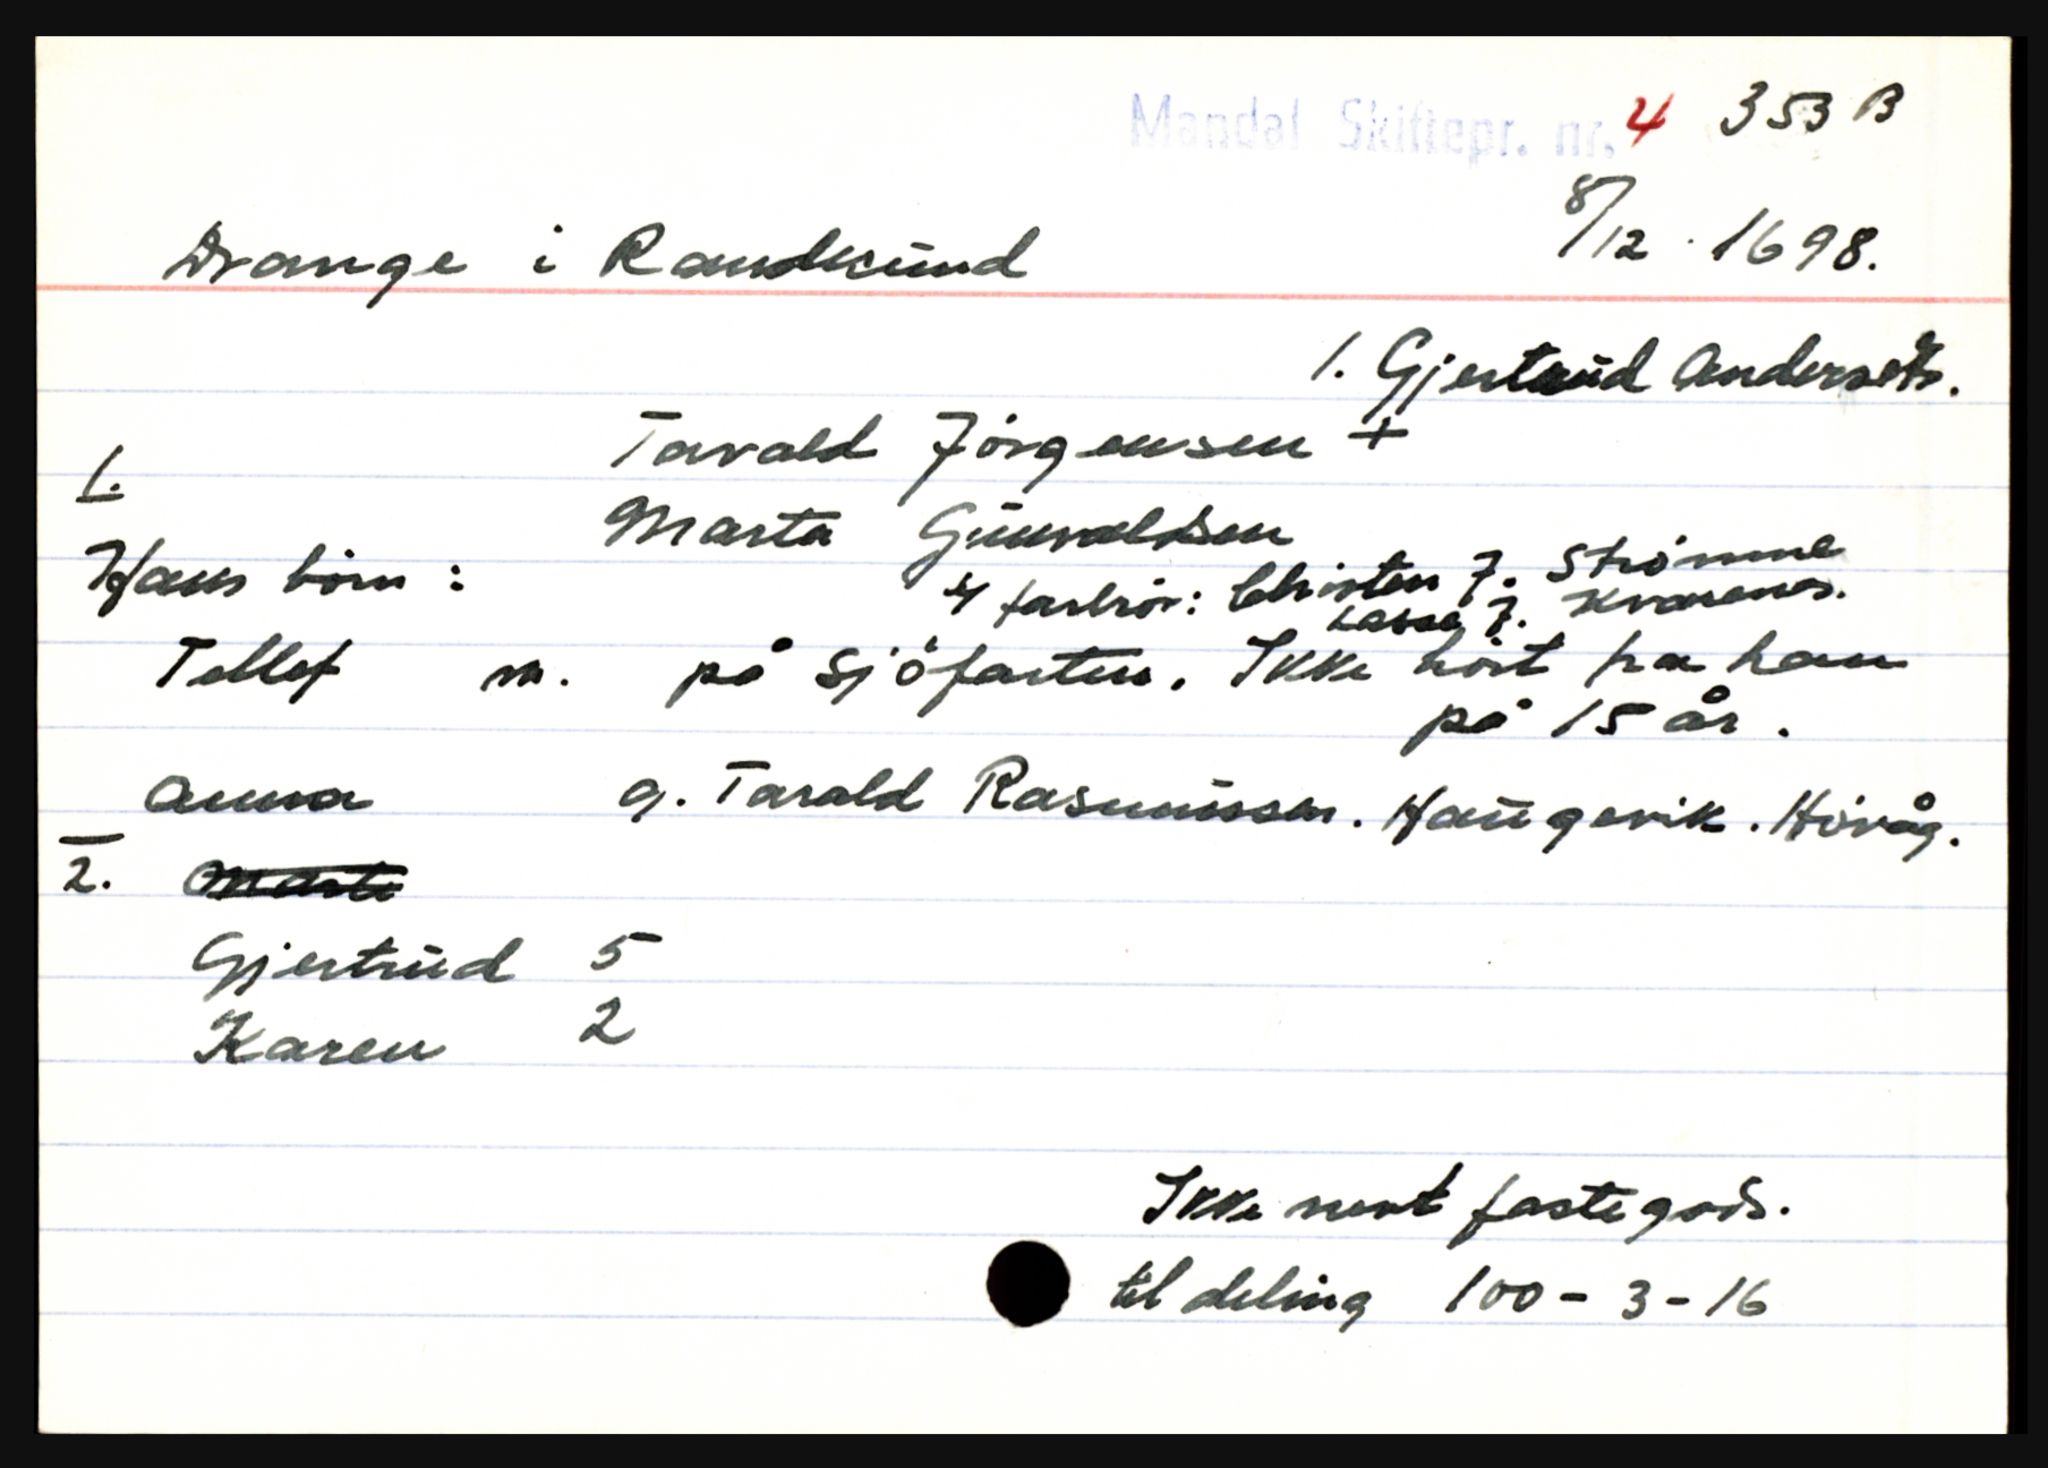 Mandal Skiftepr. nr. 4 353 B
8/12 1698.
Drange i Randesund
1. Gjertrud Andersdtr.
Tarald Jörgensen +
1.
Marta Gunvaldsen
Hans børn :
4 farbrør: Christen J. Strømme
Lasse J. Kvarenes.
Tellef m. på sjöfarten. Ikke hört fra han
på 15 år.
Anna g. Tarald Rasmussen. Haugevik. Hövåg.
2. Marte
Gjertrud 5
Karen 2
Ikke nevnt fastegods.
til deling 100 - 3 - 16